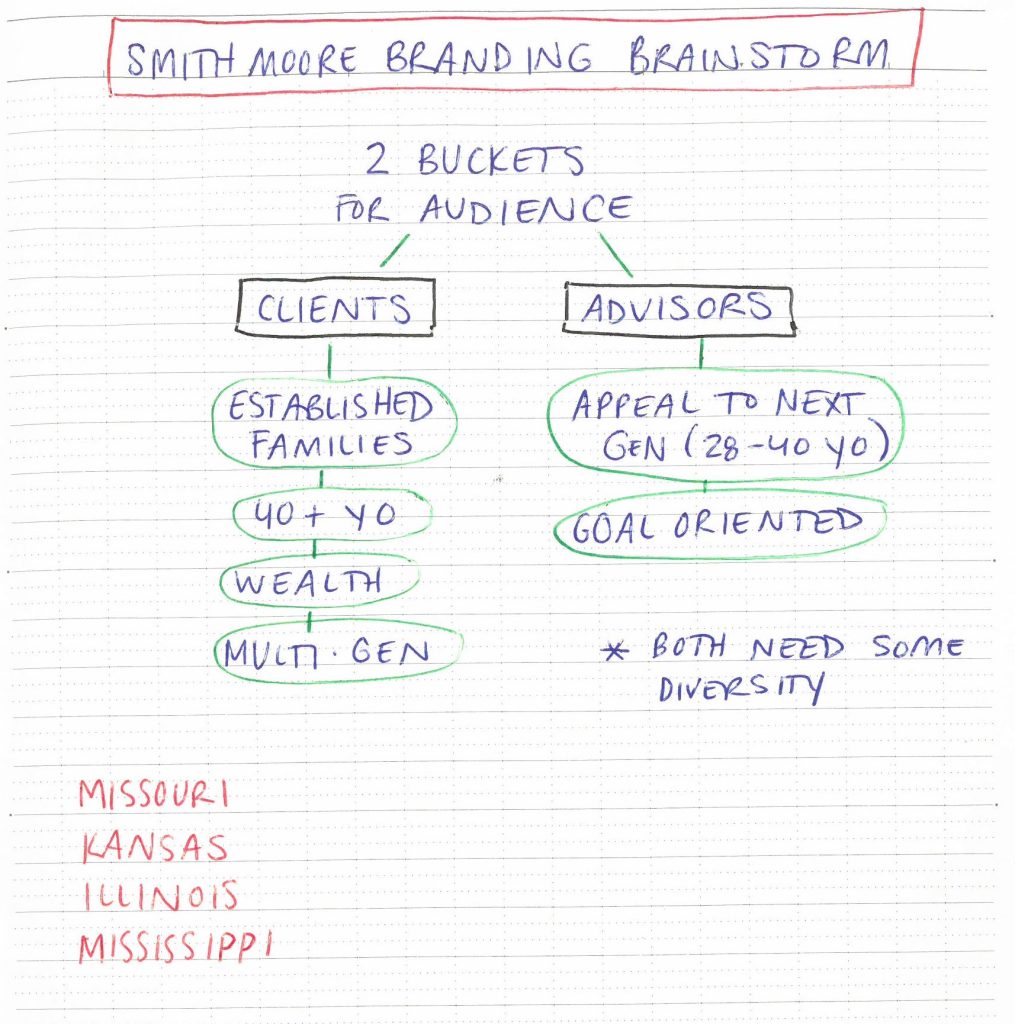 SMITH MOORE BRANDING BRAINSTORM
2 BUCKETS
FOR AUDIENCE
CLIENTS
ESTABLISHED
FAMILIES
40+ YO
WEALTH
MULTI·GEN
ADVISORS
APPEAL TO NEXT
GEN (28-40 YO)
GOAL ORIENTED
* BOTH NEED SOME
DIVERSITY
MISSOURI
KANSAS
ILLINOIS
MISSISSIPPI